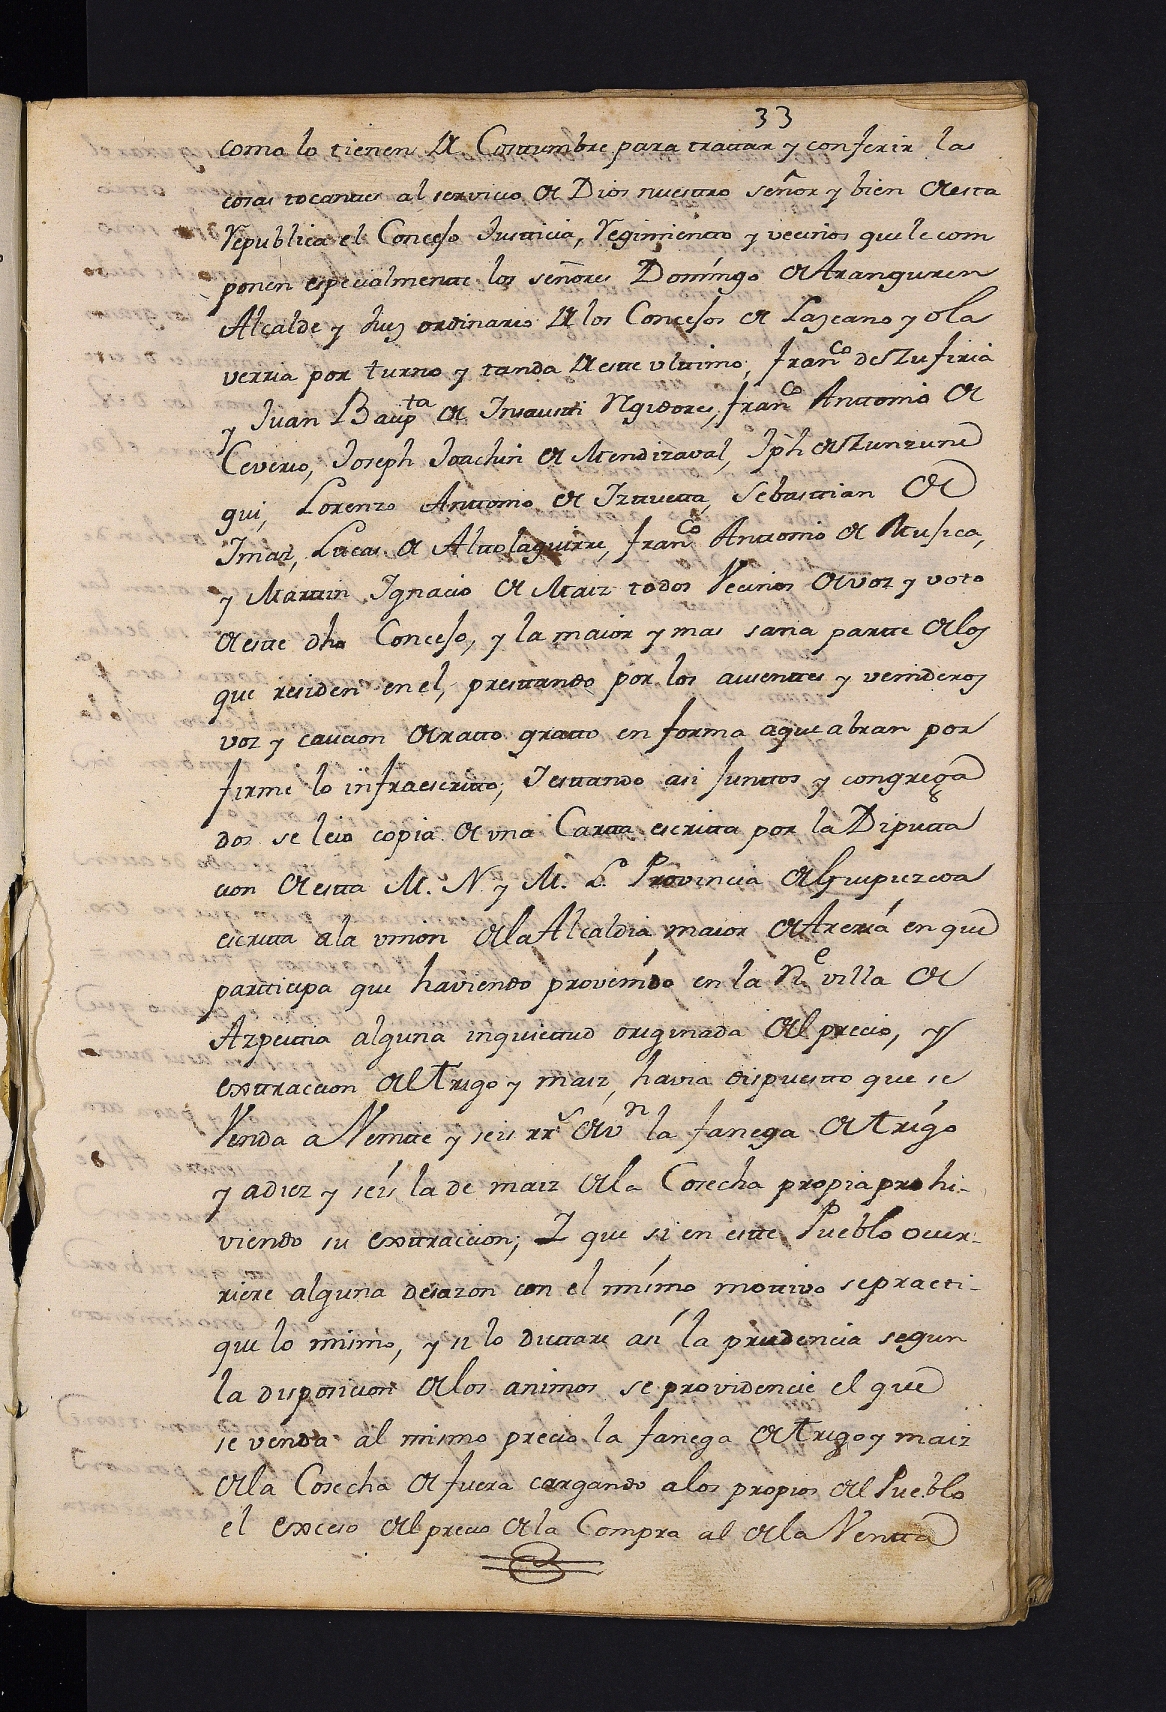 33
como lo tienen de Costtumbre para trattar y conferir las
cosas tocanttes al servicio de Dios nuesttro señor y bien de esta
Republica el Concejo Justticia, Regimientto y vecinos que le com
ponen especialmentte los señores Domíngo de Aranguren
Alcalde y Juez ordinario de los Concejos de Lazcano y Ola
verria por turno y tanda de estte vlttimo, Fran.co de Zufiria
y Juan Baup.ta de Insaustti Rgidores, Fran.co Anttonio de
Ceverio, Joseph Joachin de Mendizaval, Jph de Zunzune
gui, Lorenzo Anttonio de Izttuetta, Sebasttian de
Imaz, Lucas de Alttolaguirre, Fran.co Anttonio de Mujica,
y Marttin Ignacio de Maiz todos Vecinos de voz y voto
de estte dho Concejo, y la maior y mas sana partte de los
que residen en el, presttando por los ausenttes y venideros
voz y caucion de ratto gratto en forma a que abran por
firme lo infraescritto; Y esttando asi Junttos y congrega
dos se leio copia de vna Cartta escritta por la Diputta
cion de estta M. N. y M. L. Provincia de Guipuzcoa
escritta a la vnion de la Alcaldia maior de Arería en que
partticipa que haviendo provenído en la N.e villa de
Azpeittia alguna inquiettud originada del precio, y
exttraccion del Trigo y maiz, havia dispuestto que se
Venda a Veintte y seis rr.s de v.n la fanega de Trígo
y a diez y seís la de maiz de la Cosecha propia prohi-
viendo su exttraccion; Y que si en estte Pueblo ocur-
riere alguna desazon con el mísmo mottivo se practi-
que lo mismo, y si lo dicttare así la prudencia segun
la disposicion de los animos se providencie el que
se venda al mismo precio la fanega de Trigo y maiz
de la Cosecha de fuera cargando a los propios del Pueblo
el exceso del precio de la Compra al de la Ventta